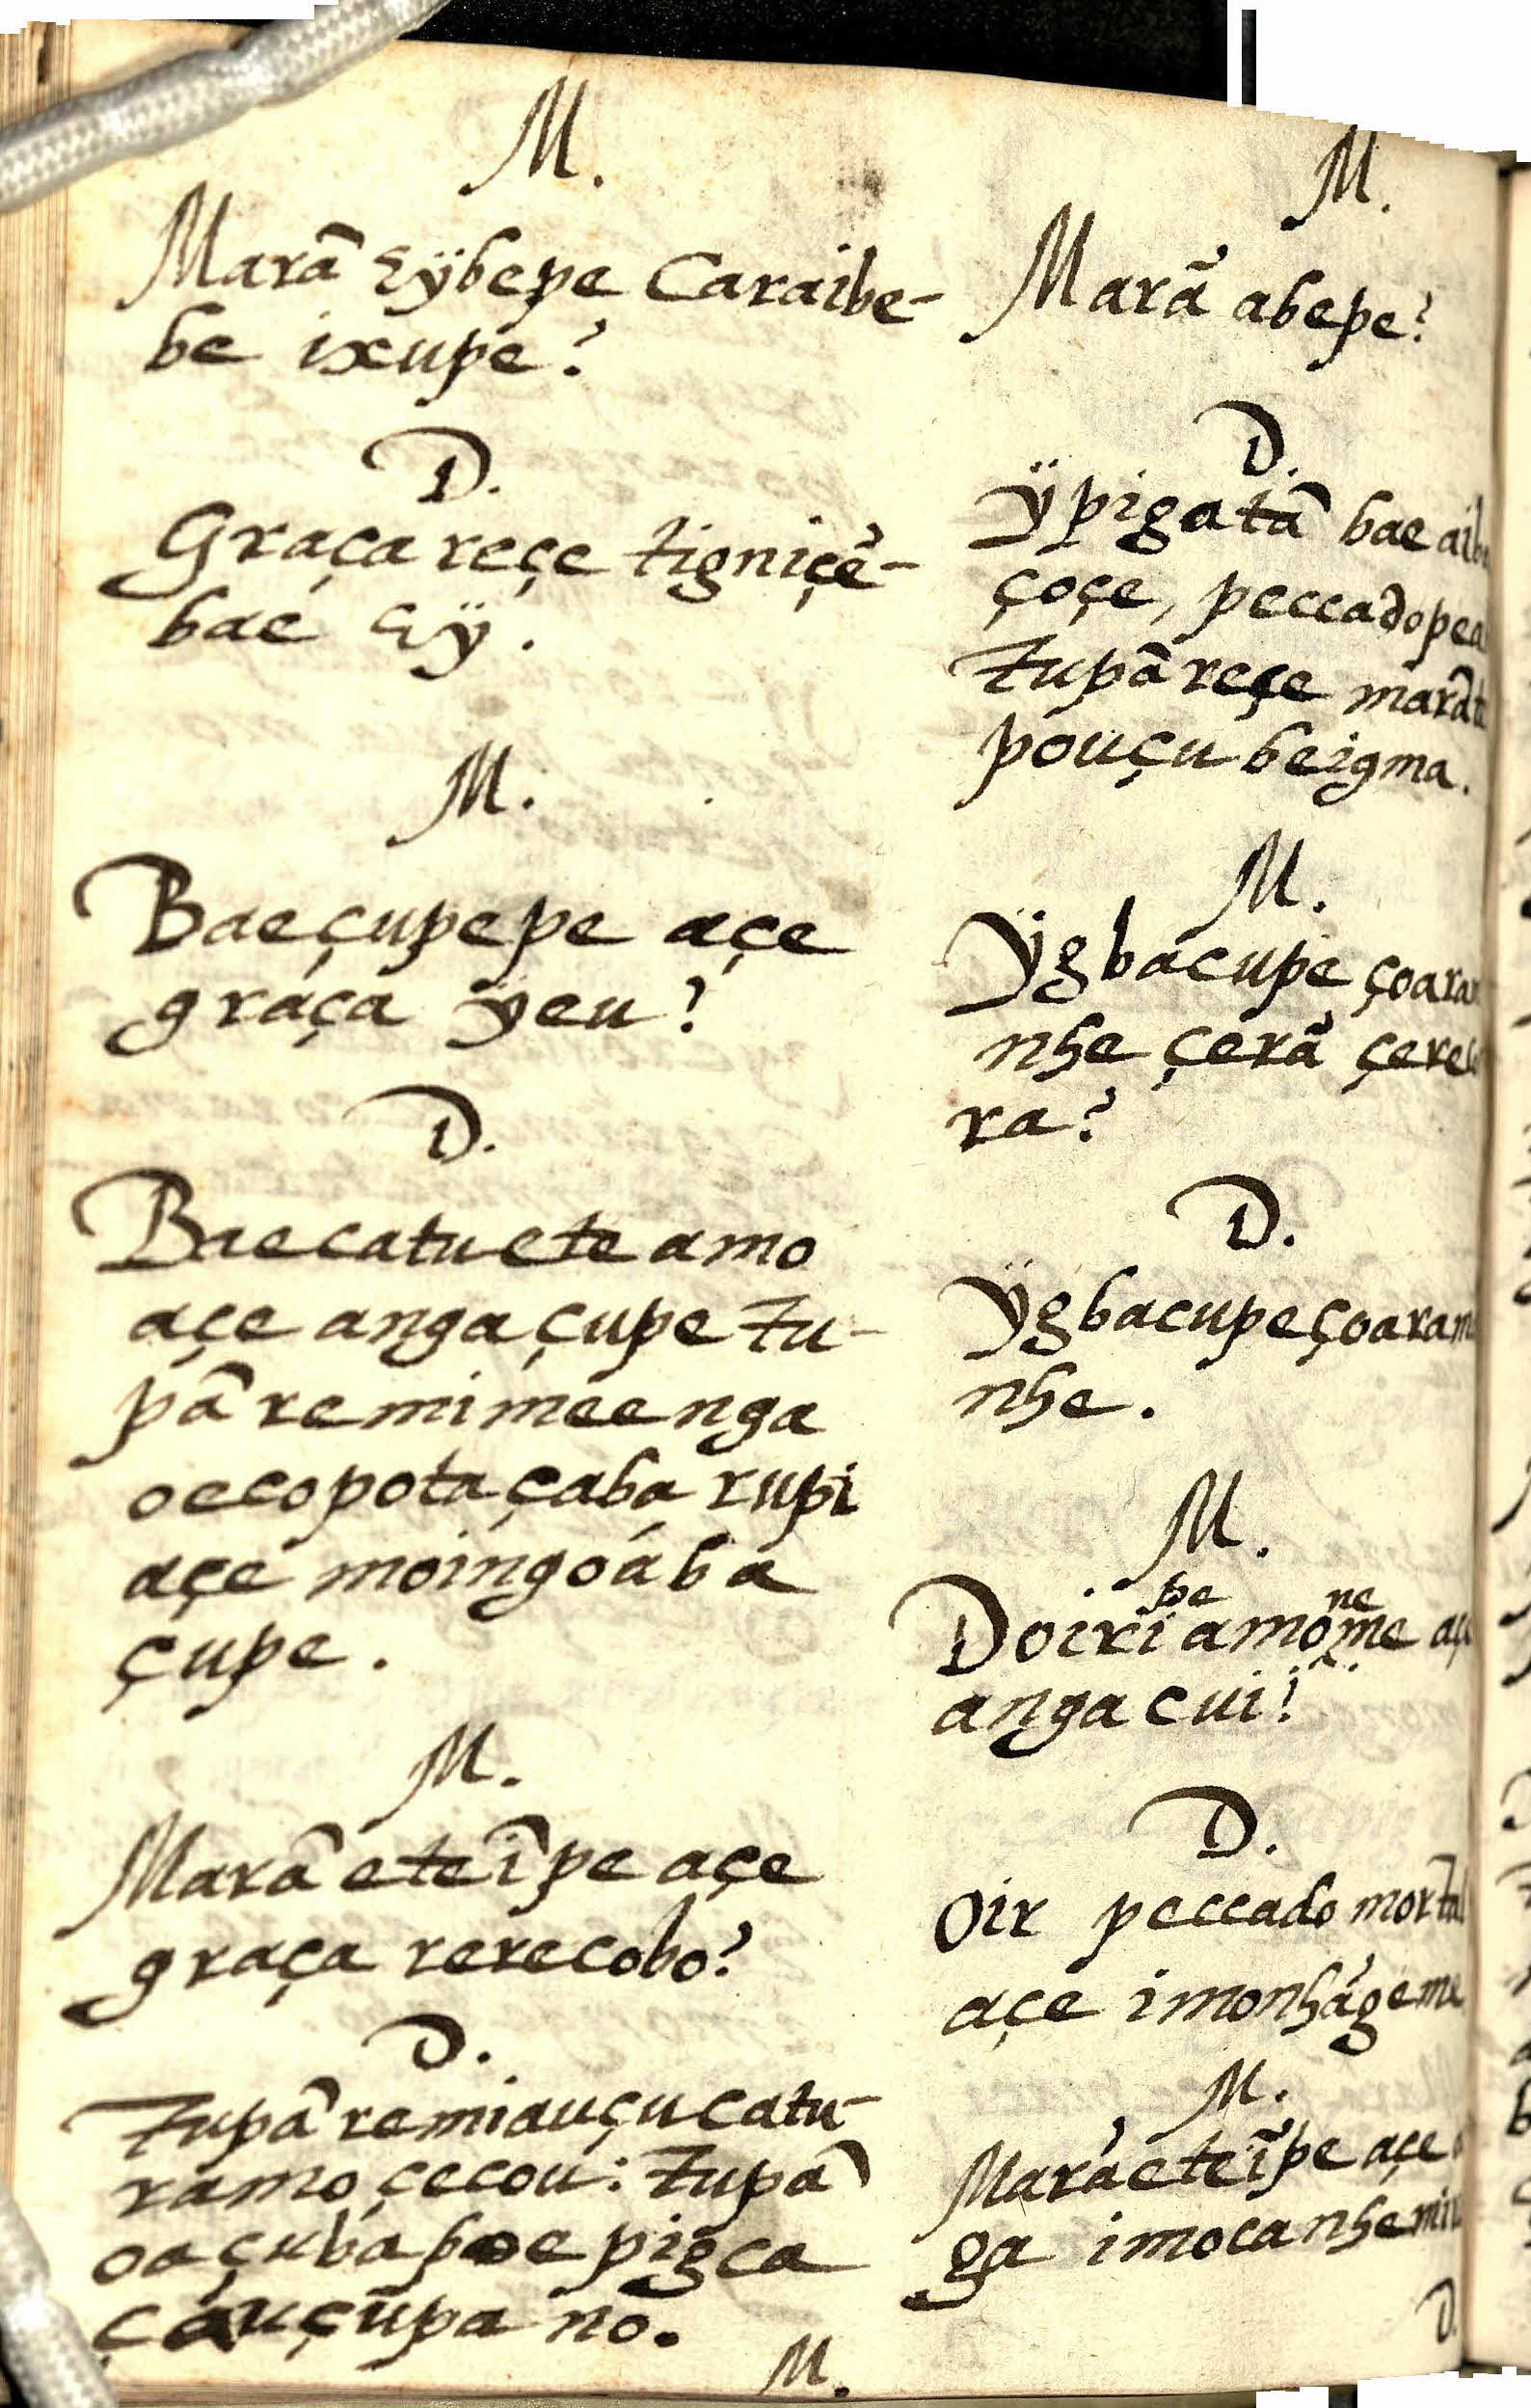 M.
Marâ Eÿbepe Caraibe-
be ixupe?
D.
Graça reçe tigniçẽ-
bae Eÿ.
M.
Baeçupepe açe
graça ÿeu?
D.
Baecatueteamo
açe angaçupe tu-
pâ remimeenga
oecopotaçaba rupi
açe moingoába
çupe.
M.
Marâ eteîpe açe
graça rerecobo?
D.
Tupâ remiauçucatu-
ramo çecou: tupâ
oaçubapoe pigca
çauçũpa no.
M.
M.
Marã abepe?
D.
ÿpigatâ bae
çoçe, peccado
tupâ reçe
pouçu beigma.
M.
Ÿgbacupe
nhe çerã
ra?
D.
Ÿgbacupeçoaram
nhe.
M.
pe ne
Doiri amome
anga cui?
D.
Oir peccado mortal
açe imonhágeme
M.
Marãeteĩpe açe
ga
D.